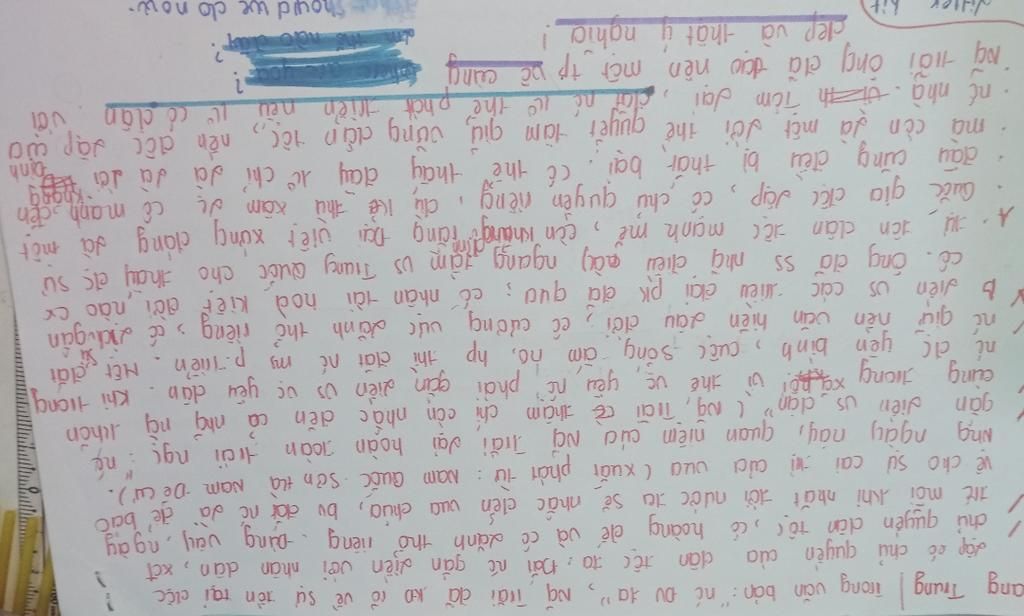 ang Trung | Trong văn bản: "nc ĐV ta", Ng Trãi đã KĐ rõ về sự tồn tại độc
lập có chủ quyền của dân tộc ta. Đối nc gắn liền với nhân dân, xđ
chủ quyền dân tộc, có hoàng đế và có lãnh thổ riêng. Đúng vậy, ngay
từ mỗi khi nhắc tới nước ta sẽ nhắc đến vua chúa, bv đất nc là để bảo
vệ cho sự cai trị của vua (xuất phát từ: Nam Quốc Sơn Hà Nam Đế Cư).
Nhg ngày nay, quan niệm của Ng Trãi lại hoàn toàn trái ngc: "nc
gắn liền vs dân" (Ng Trãi thậm chí còn nhắc đến cả nhg ng khốn
cùng trong xã hội vì thế vc yêu nc phải gắn liền vs vc yêu dân. Khi trong
nc đc yên bình, cuộc sống ấm no, hp thì đất nc ms p.triển. Một đất
nc giữ nền văn hiến lâu đời, có cương vực lãnh thổ riêng, có lịch sử gắn
liền vs các triều đại pk đã qua; có nhân tài hào kiệt đời nào cx
có. Ông đã ss nhg điều ấy ngang tầm vs Trung Quốc cho thấy đc sự
tự tôn dân tộc mạnh mẽ, còn khẳng định rằng Đại Việt xứng đáng là một
quốc gia độc lập, có chủ quyền riêng, dù kẻ thù xâm lc có mạnh đến
đâu cũng đều bị thất bại. có thể thấy đây k chỉ là lời khẳng định
mà còn là một lời thề quyết tâm giữ vững dân tộc, nền độc lập của
nc nhà. Tóm lại, đất nc k thể phát triển nếu k có dân với
Ng Trãi ông đã tạo nên một tp vô cùng
đẹp và thật ý nghĩa!
should we do now.
litter bit